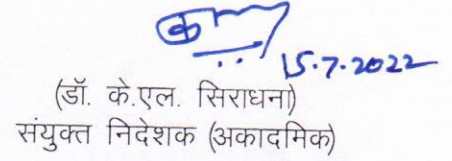 15.7.2022
(डॉ. के.एल. सिराधना)
संयुक्त निदेशक (अकादमिक)